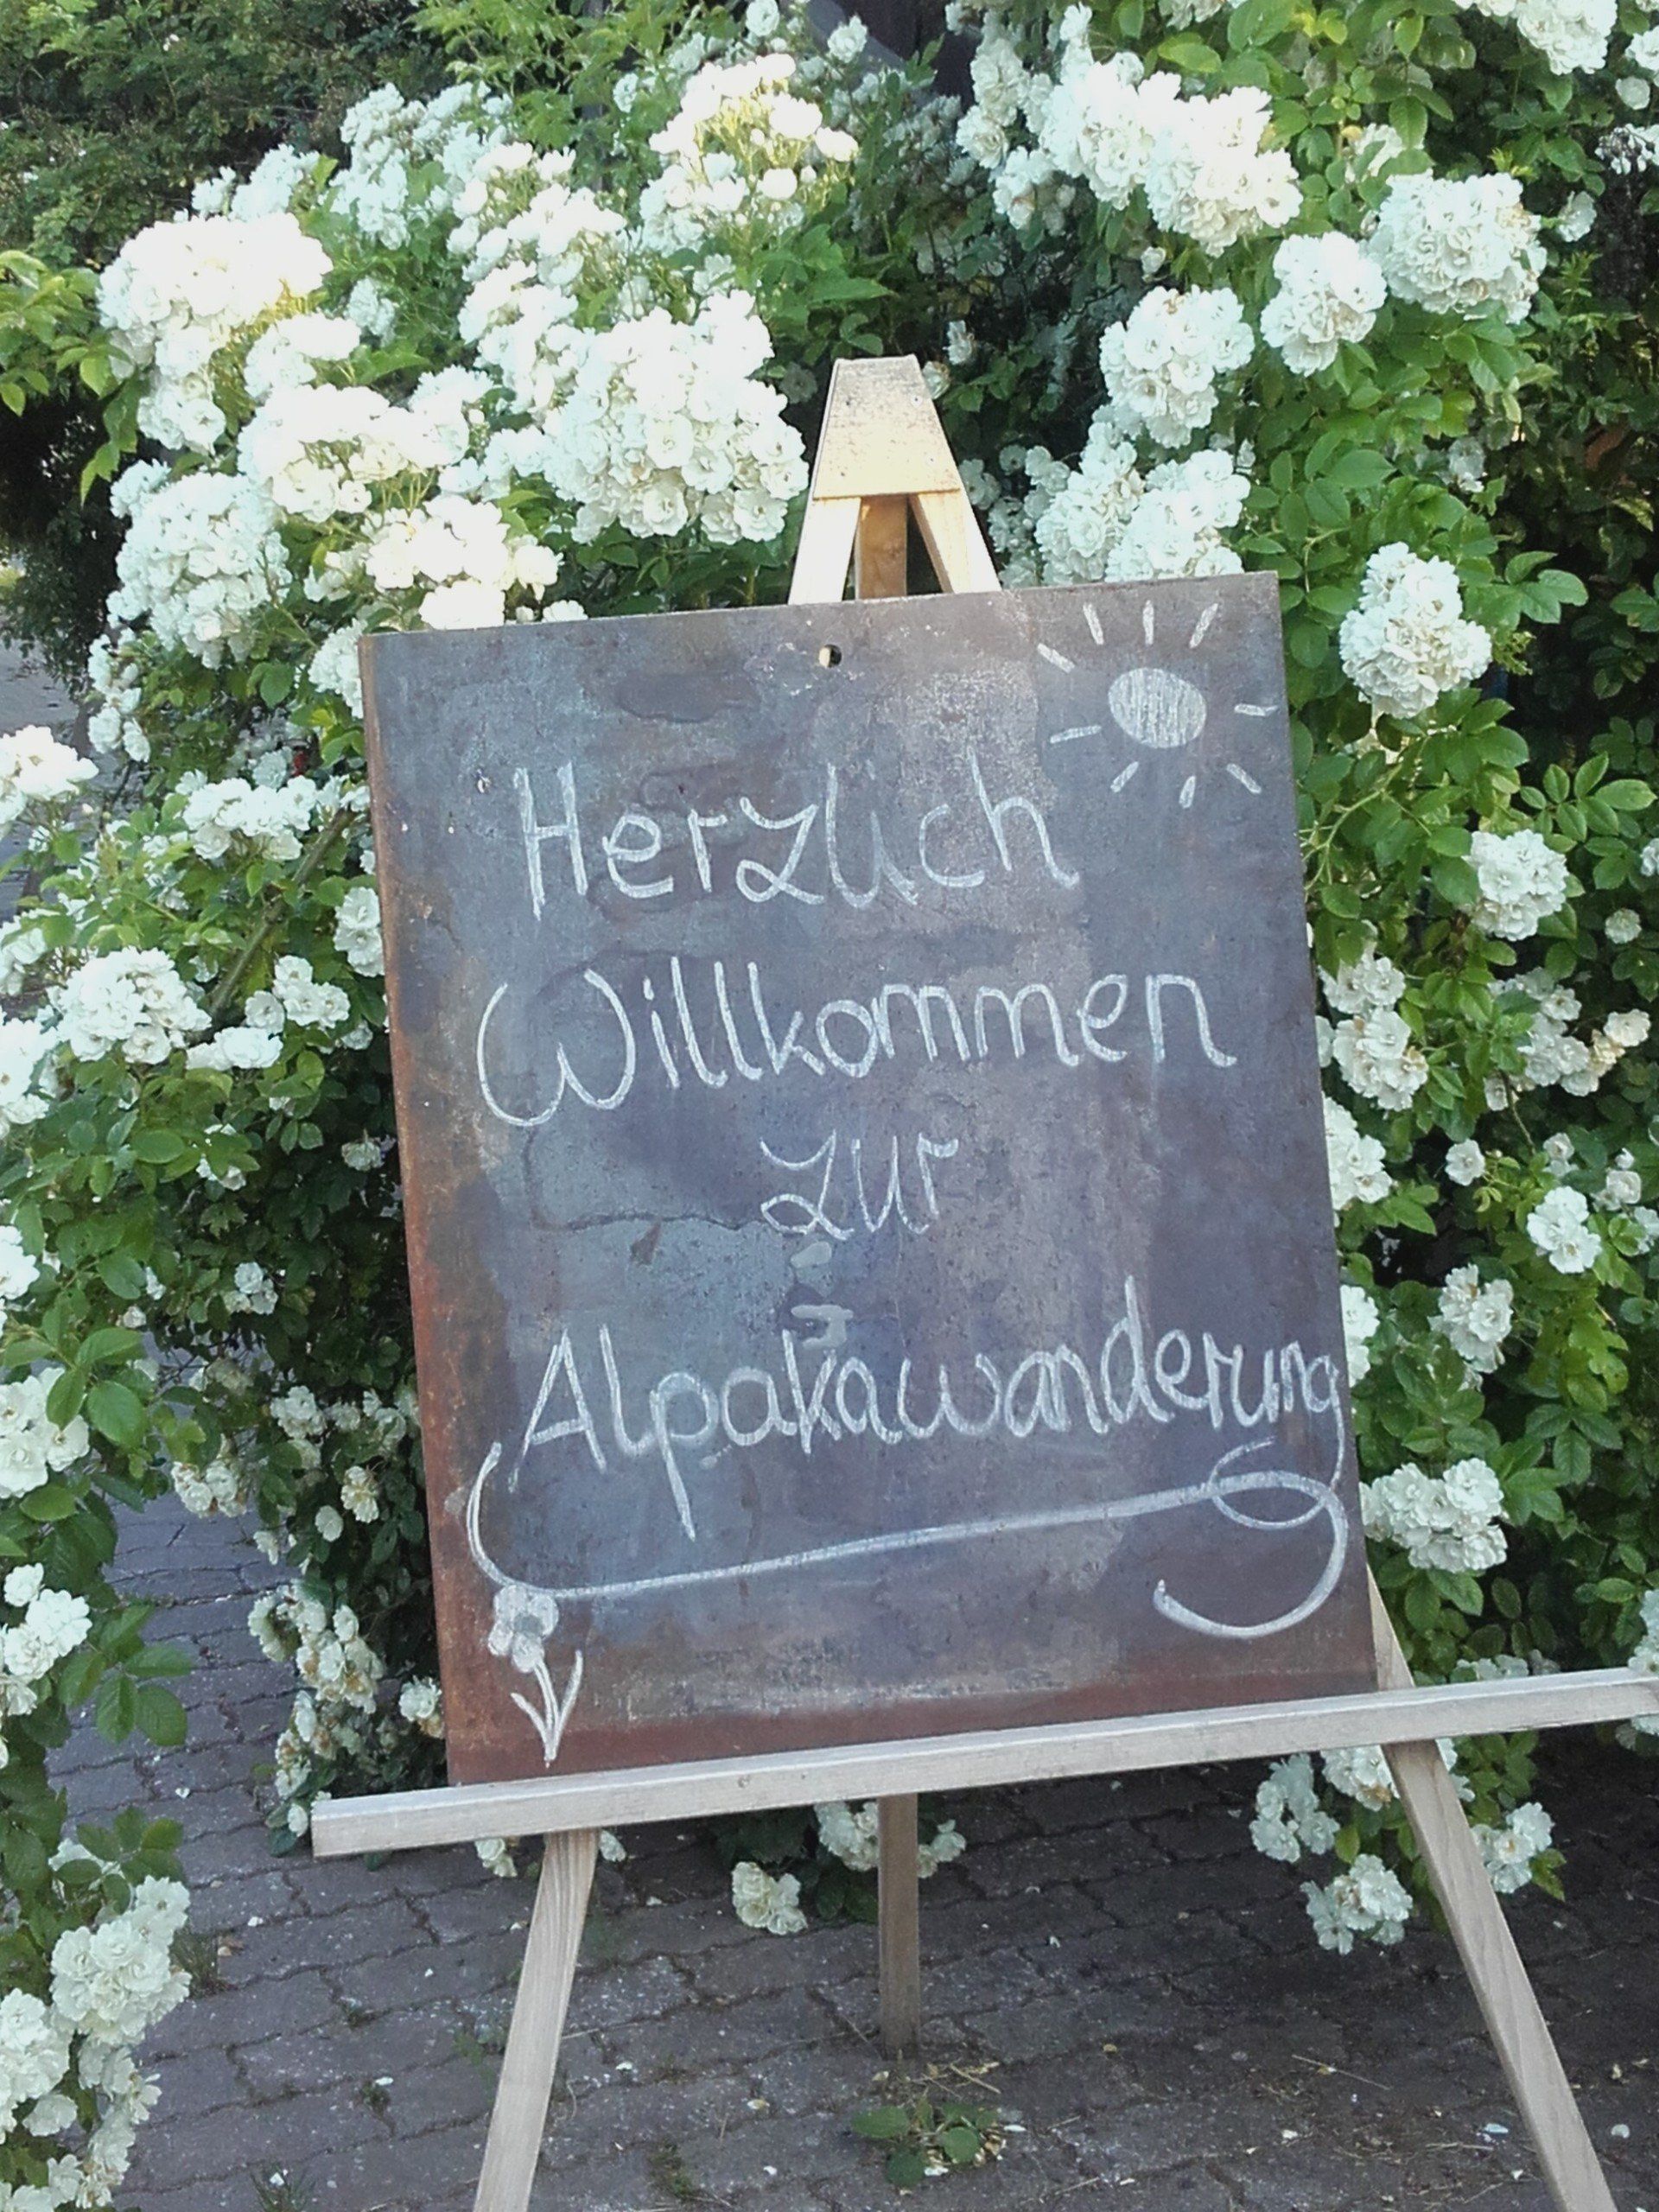 Herzlich
Willkommen
zur
Alpakawanderung